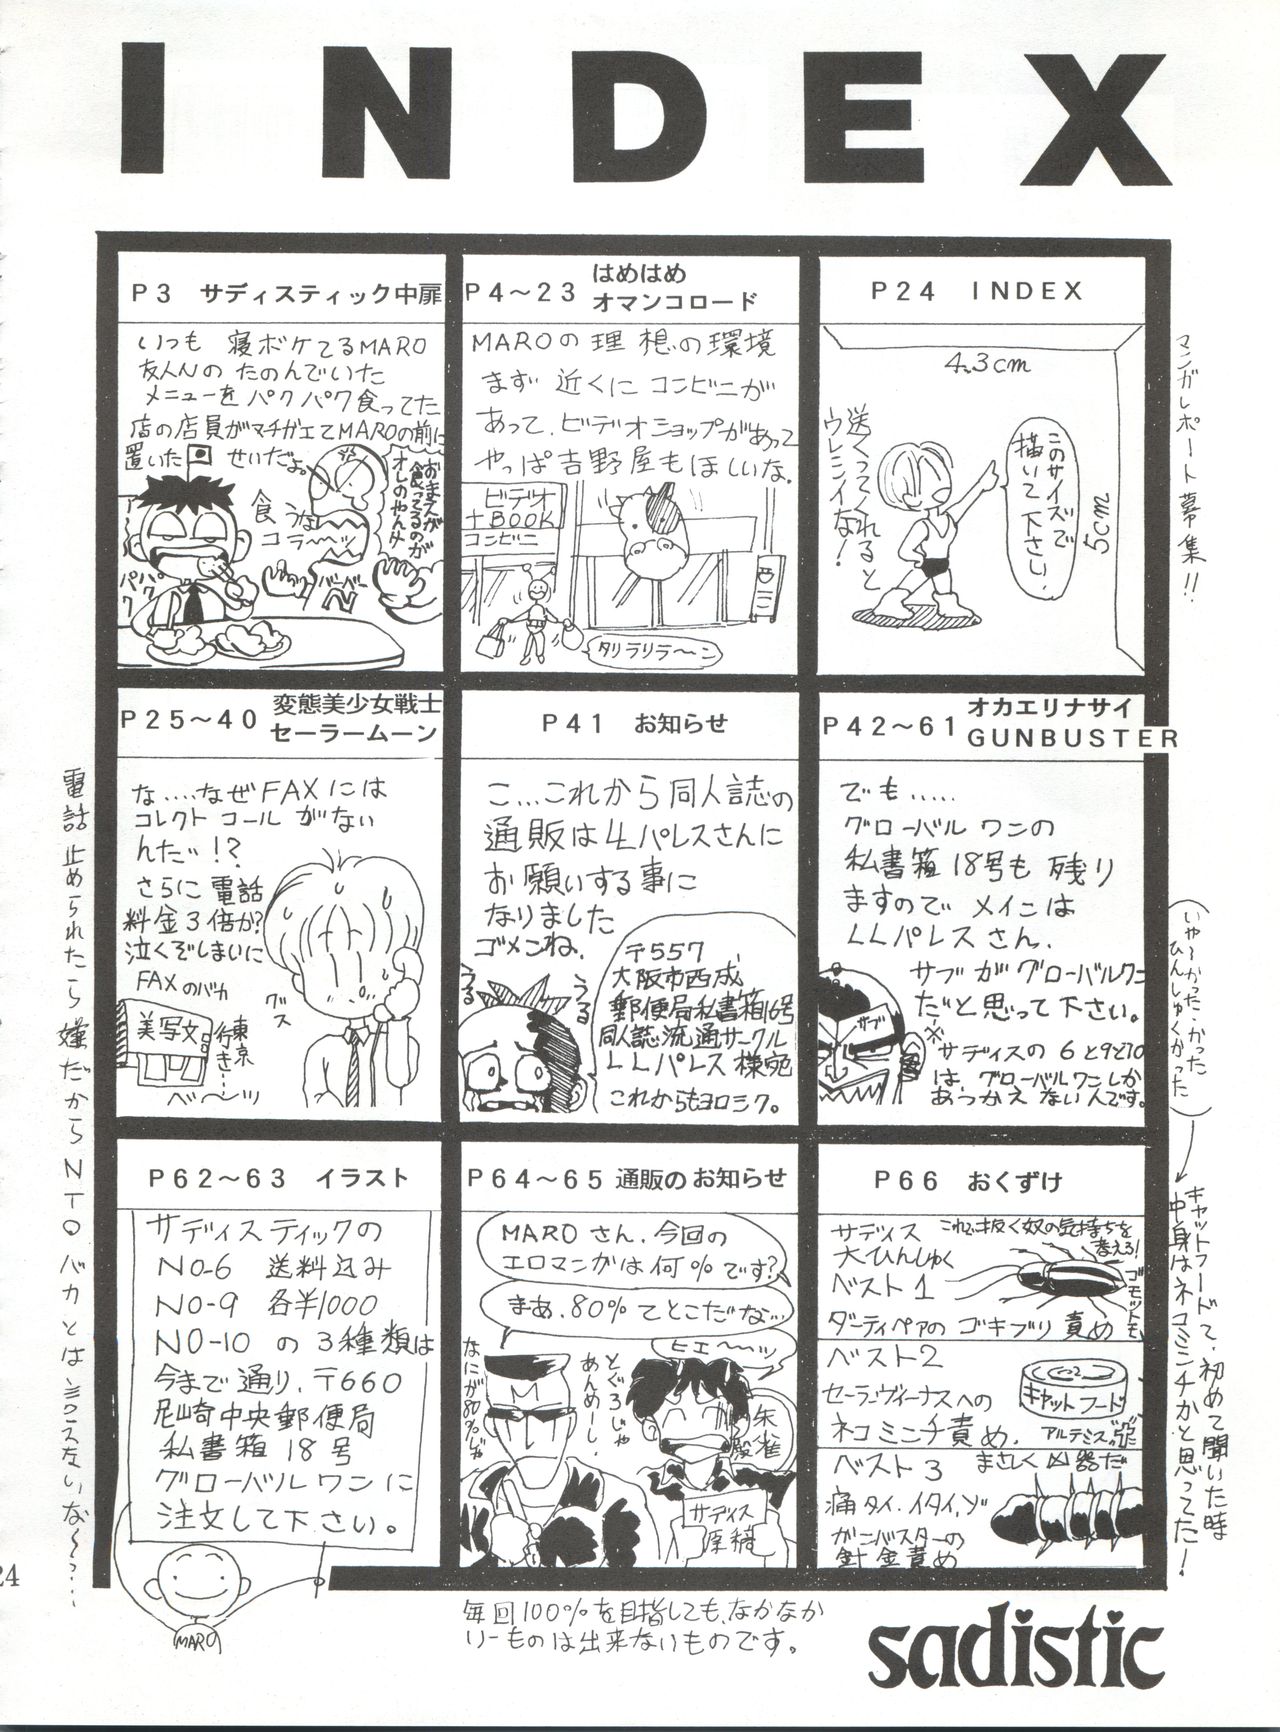 INDEX
P3 サディスティック中扉
いつも 寝ボケてるMARO
友人Nの たのんでいた
メニューを パクパク食ってた
店の店員がマチガエてMAROの前に
置いた せいだよ。
ア〜
パクパク
食うな
コラ〜〜ッ
おまえが
食ってるのが
オレのやんけ
バーベーN
P4〜23 はめはめ
オマンコロード
MAROの理想の環境
まず 近くに コンビニが
あって、ビデオショップがあって
やっぱ吉野屋もほしいな。
ビデオ
+BOOK
コンビニ
タリラリラ〜ン
P24 INDEX
4.3cm
5cm
このサイズで
描いて下さい。
送くってくれると
ウレシイな!
マンガレポート募集!!
P25〜40 変態美少女戦士
セーラームーン
な....なぜFAXには
コレクト コールがない
んだ!?
さらに 電話
料金3倍か?
泣くぞしまいに
FAXのバカ
グス
美写文
東京
行き…
ベ〜ンッ
電話止められたら嫌だからNTOバカとは言えないな〜…
P41 お知らせ
こ…これから同人誌の
通販はLLパレスさんに
お願いする事に
なりました
ゴメンね。
うる
うる
〒557
大阪市西成
郵便局私書箱16号
同人誌流通サークル
LLパレス 様宛
これからもヨロシク。
P42〜61 オカエリナサイ
GUNBUSTER
でも.....
グローバル ワンの
私書箱18号も 残り
ますので メインは
LLパレスさん、
サブがグローバルワン
だと思って下さい。
サブ
※
サディスの 6と9と10
は、グローバルワンしか
あつかえ ないんです。
(いや〜かった・かった
ひんしゅくかった)
P62〜63 イラスト
サディスティックの
NO-6 送料込み
NO-9 各半1000
NO-10 の 3種類は
今まで通り、〒660
尼崎中央郵便局
私書箱 18号
グローバルワンに
注文して下さい。
MARO
P64〜65 通販のお知らせ
MAROさん、今回の
エロマンガは何%です?
まあ、80%てとこだな…
ヒエ〜〜ッ
なにが80%じゃ
とぐろじゃ
あんめーし、
朱雀
殿
サディス
原稿
P66 おくずけ
サディス
大ひんしゅく
ベスト1
これで抜く奴の気持ちを
考えろ!
ゴモットモ
ダーティペァの ゴキブリ 責め
ベスト2
セーラーヴィーナスへの
ネコミンチ責め、
キャットフード
アルテミスの
ベスト3
まさしく凶器だ
痛タイ、イタイ、ゾ
ガンバスターの
針金責め
キャットフードて、初めて聞いた時
中身はネコミンチかと思ってた!
毎回100%を目指しても、なかなか
いーものは出来ないものです。
24
sadistic